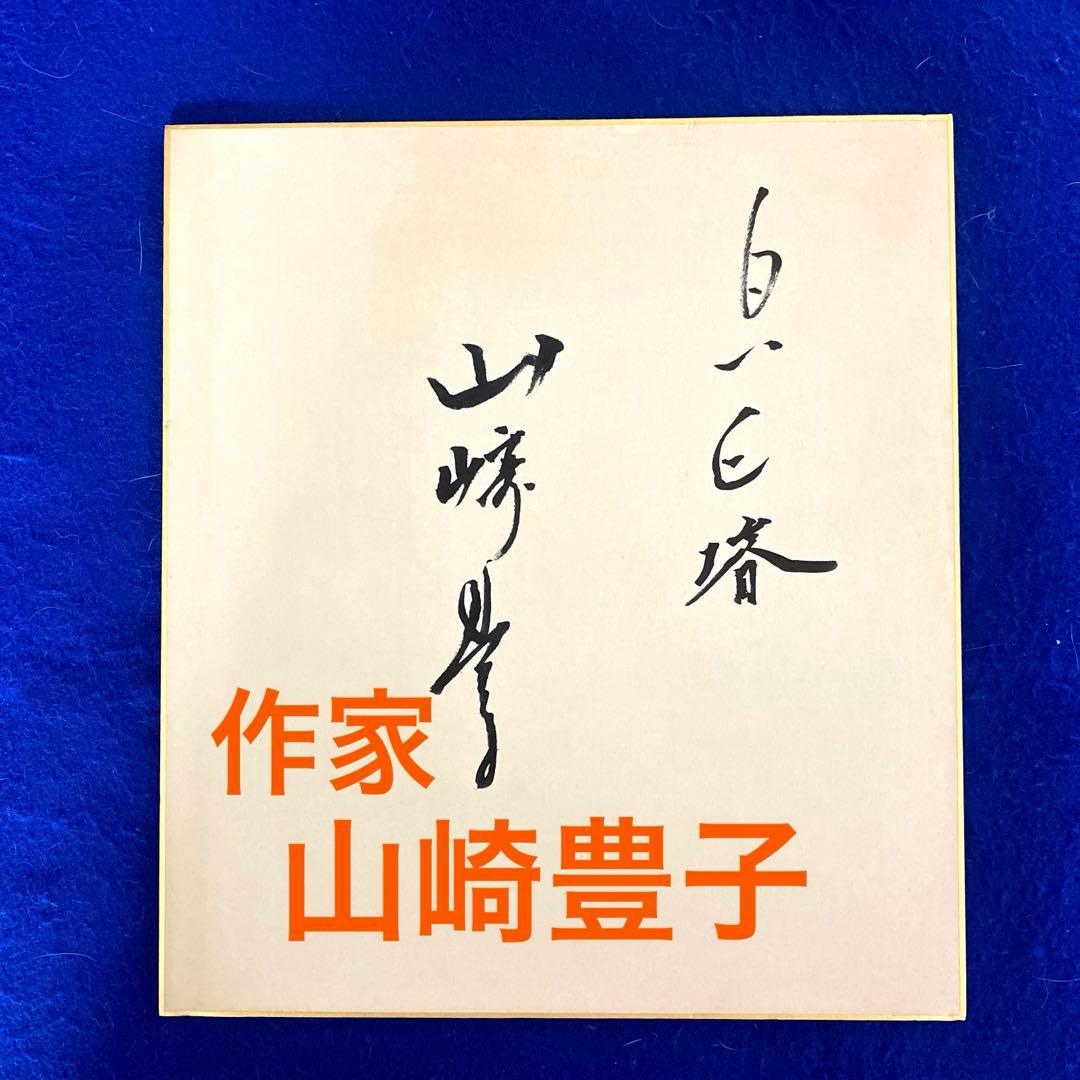 白い巨塔
山崎豊子
作家
山崎豊子